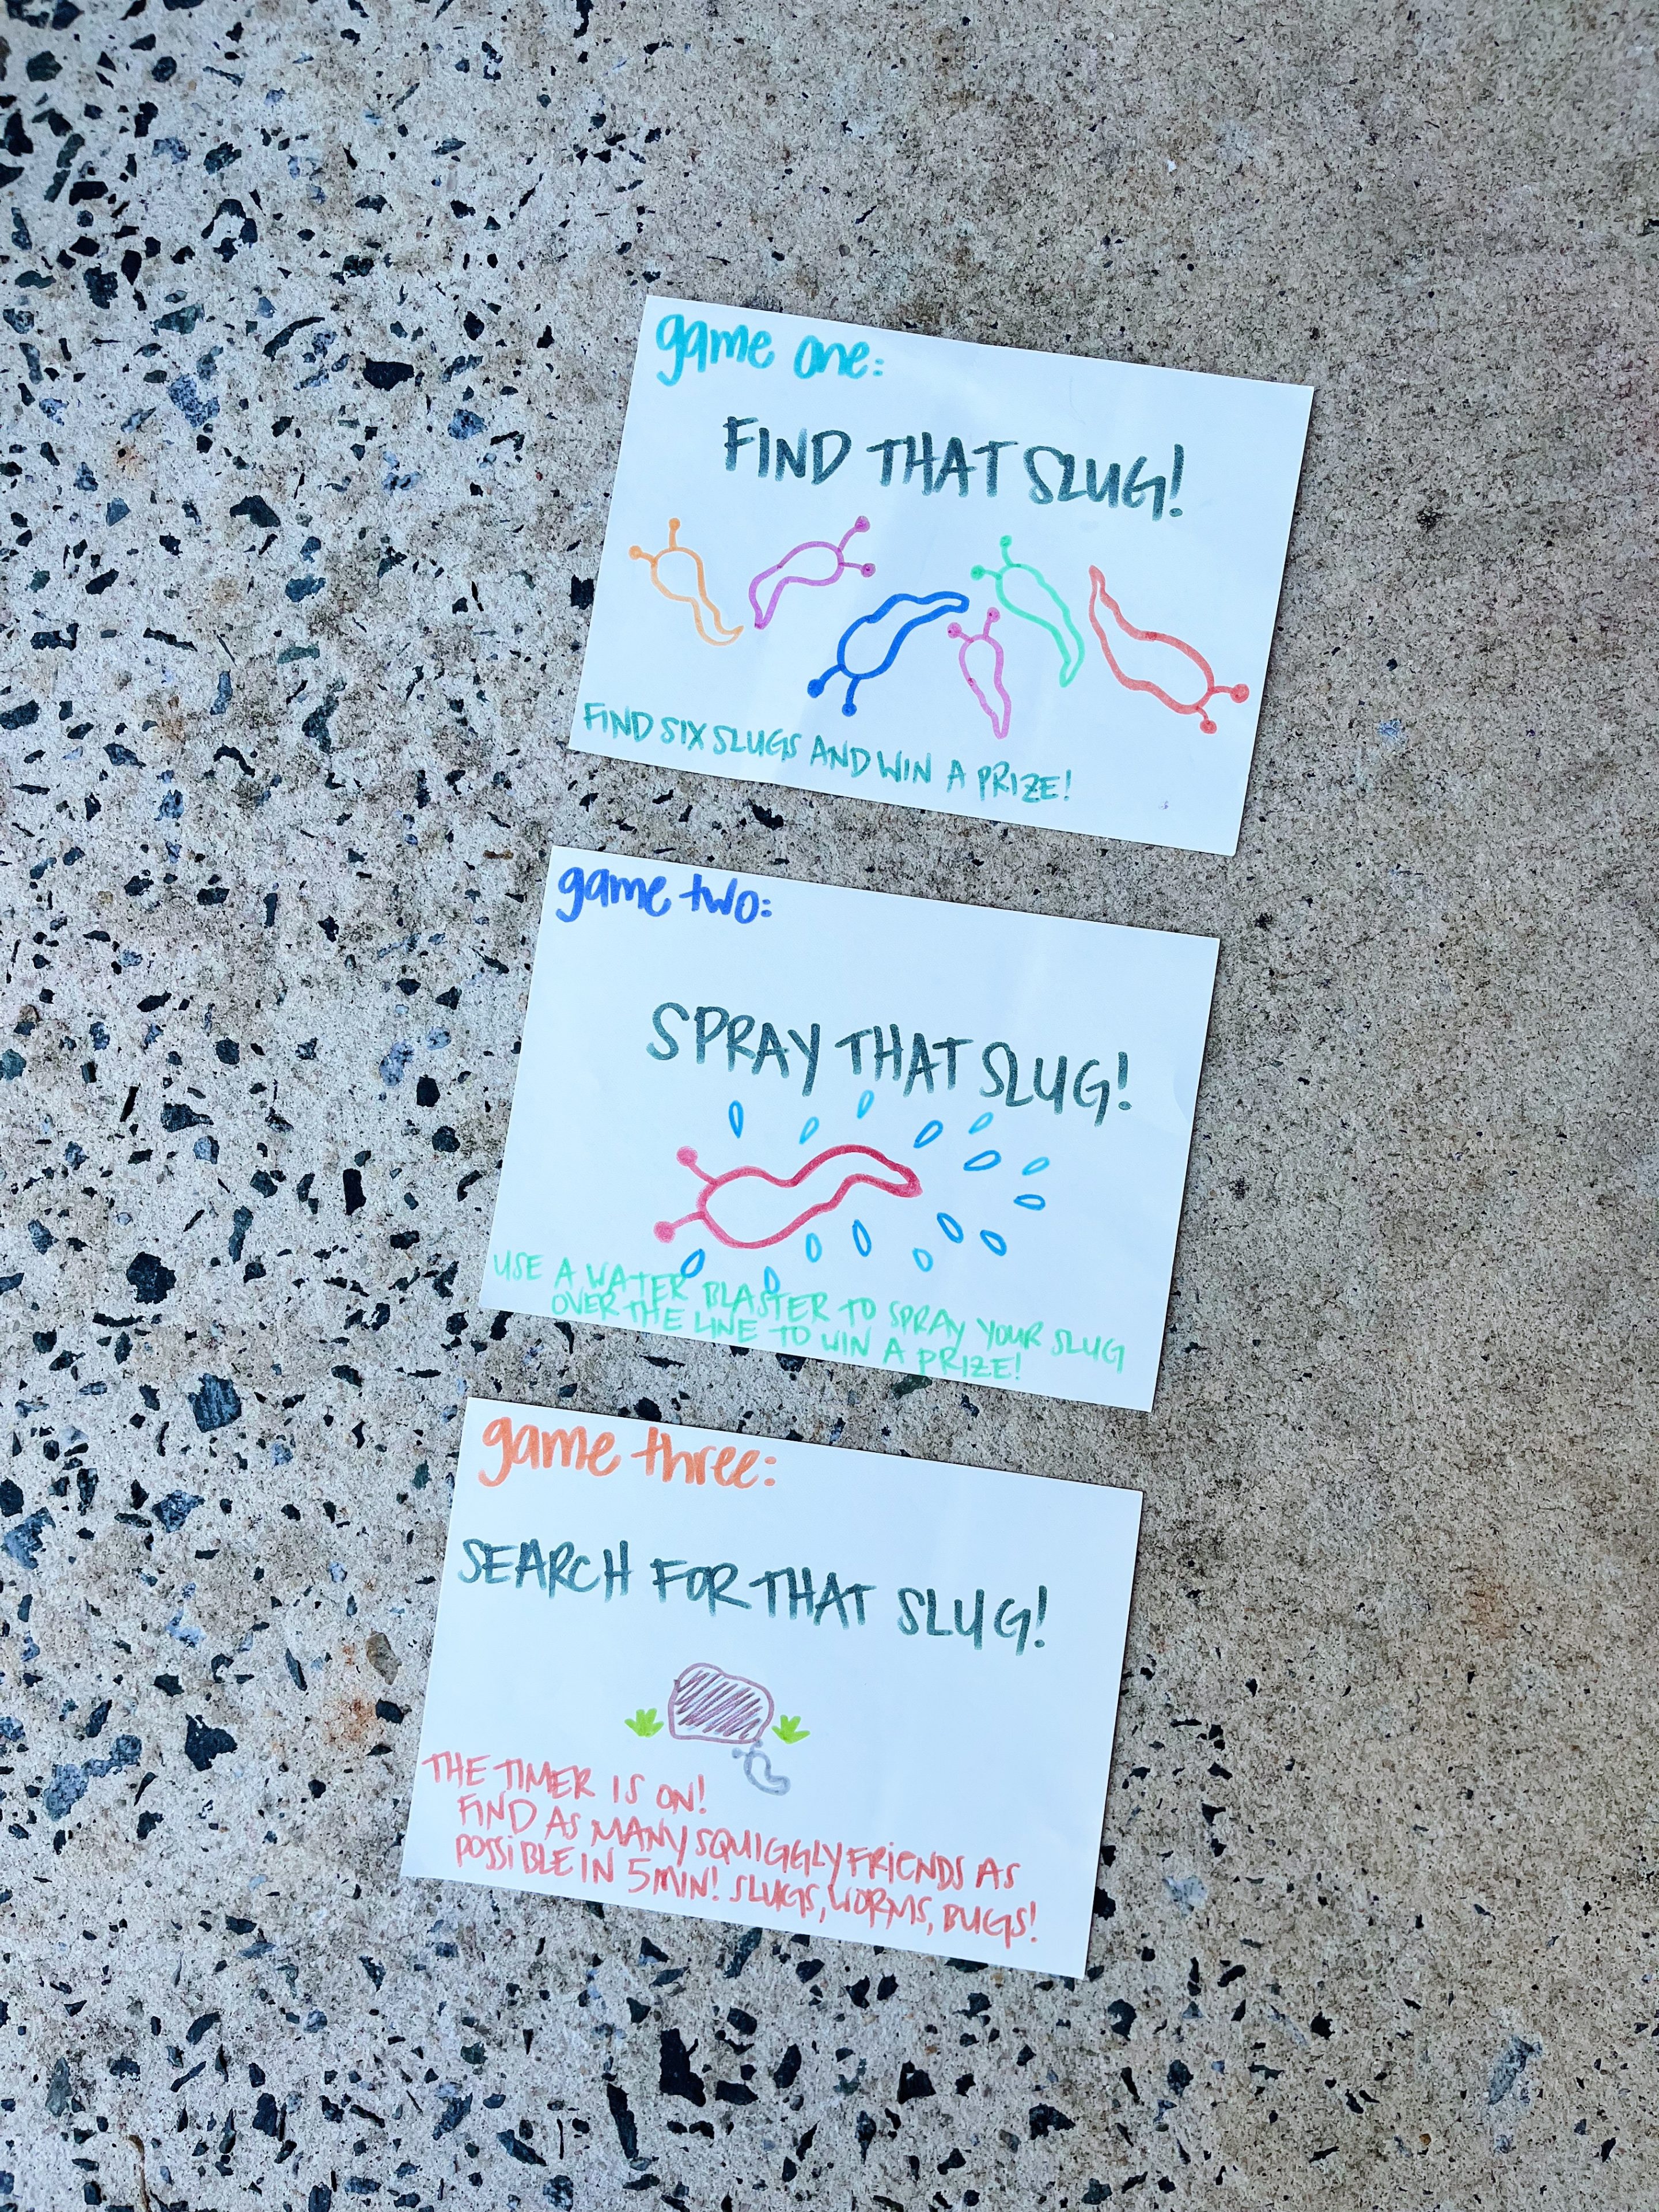 game one:
FIND THAT SLUG!
FIND SIX SLUGS AND WIN A PRIZE!
game two:
SPRAY THAT SLUG!
USE A WATER BLASTER TO SPRAY YOUR SLUG
OVER THE LINE TO WIN A PRIZE!
game three:
SEARCH FOR THAT SLUG!
THE TIMER IS ON!
FIND AS MANY SQUIGGLY FRIENDS AS
POSSIBLE IN 5 MIN! SLUGS, WORMS, BUGS!